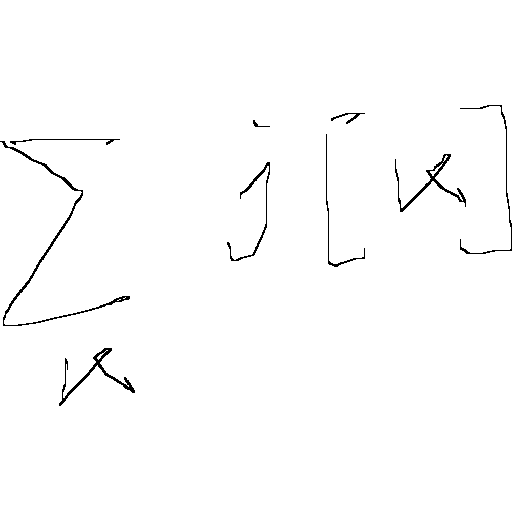 \sum_{k} j[k]